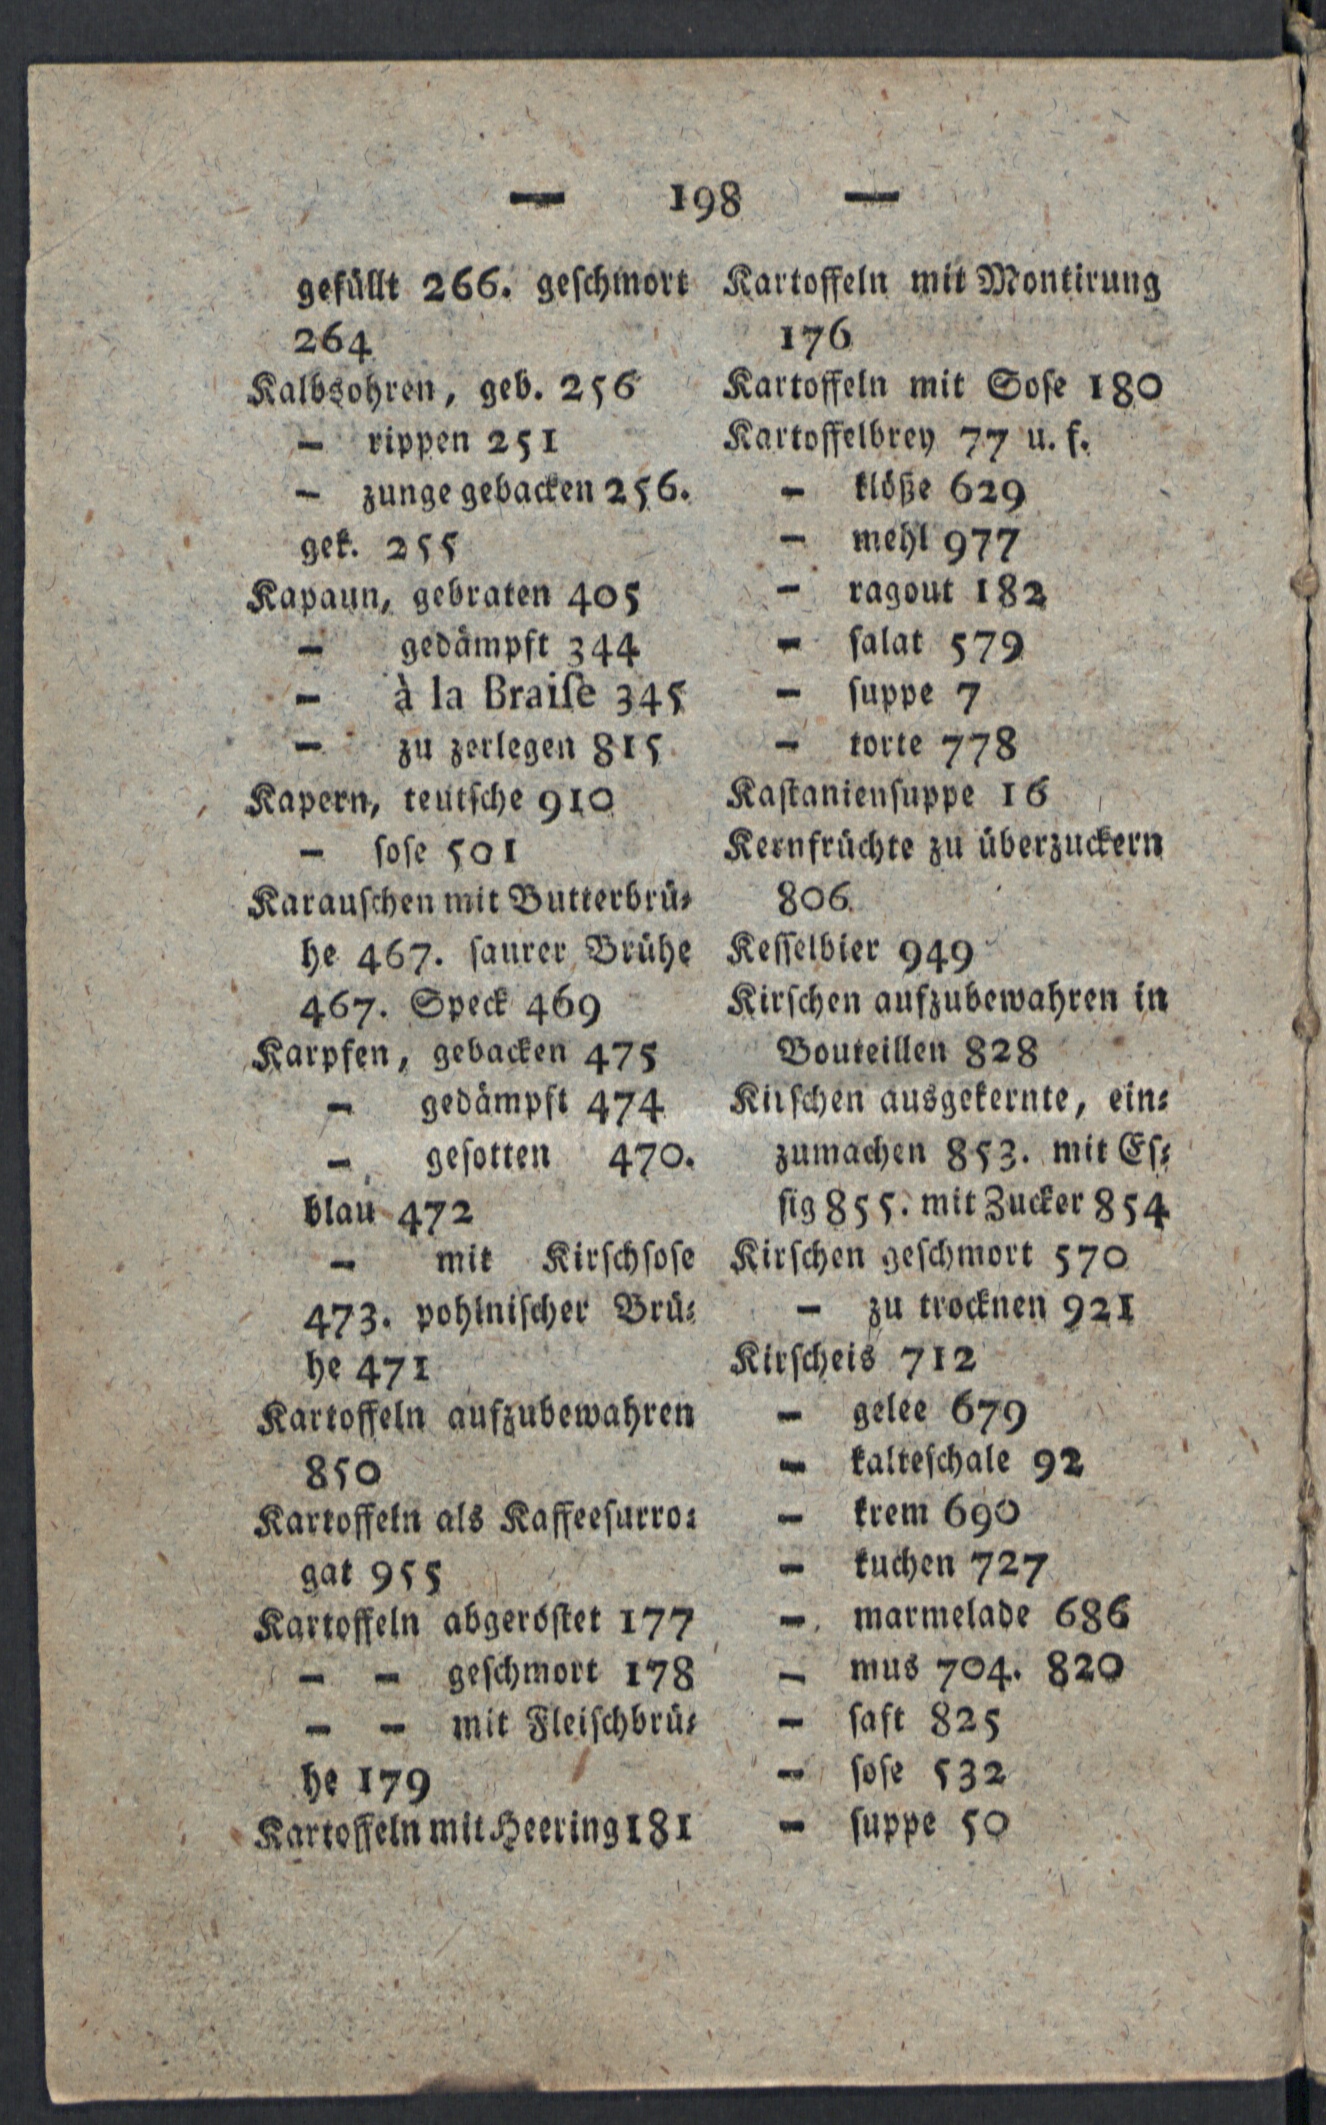 — 198 —
gefüllt 266. geschmort
264
Kalbsohren, geb. 256
— rippen 251
— zunge gebacken 256.
gek. 255
Kapaun, gebraten 405
— gedämpft 344
— à la Braise 345
— zu zerlegen 815
Kapern, teutsche 910
— sose 501
Karauschen mit Butterbrü⸗
he 467. saurer Brühe
467. Speck 469
Karpfen, gebacken 475
— gedämpft 474
— gesotten 470.
blau 472
— mit Kirschsose
473. pohlnischer Brü⸗
he 471
Kartoffeln aufzubewahren
850
Kartoffeln als Kaffeesurro⸗
gat 955
Kartoffeln abgeröstet 177
— — geschmort 178
— — mit Fleischbrü⸗
he 179
Kartoffeln mit Heering 181
Kartoffeln mit Montirung
176
Kartoffeln mit Sose 180
Kartoffelbrey 77 u. f.
— klöße 629
— mehl 977
— ragout 182
— salat 579
— suppe 7
— torte 778
Kastaniensuppe 16
Kernfrüchte zu überzuckern
806
Kesselbier 949
Kirschen aufzubewahren in
Bouteillen 828
Kirschen ausgekernte, ein⸗
zumachen 853. mit Es⸗
sig 855. mit Zucker 854
Kirschen geschmort 570
— zu trocknen 921
Kirscheis 712
— gelee 679
— kalteschale 92
— krem 690
— kuchen 727
— marmelade 686
— mus 704. 820
— saft 825
— sose 532
— suppe 50